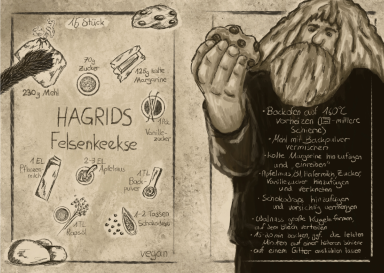 15 Stück
70g
Zucker
125g kalte
Margarine
230g Mehl
HAGRIDS
Felsenkekse
1 Pck.
Vanille-
zucker
1 EL
milch
2-3 EL
Apfelmus
1 TL
Back-
pulver
1 TL
1-2 Tassen
Schokodrops
vegan
• Backofen auf 160°C
vorheizen (mittlere
Schiene)
• Mehl mit Backpulver
vermischen
• kalte Margarine hinzufügen
und "einreiben"
• Apfelmus, Zucker,
Vanillezucker hinzufügen
und verkneten
• Schokodrops hinzufügen
und vorsichtig
• große Kugeln formen,
auf dem Blech verteilen
• backen, die letzten
Minuten auf einer höheren Schiene
• auf einem Gitter auskühlen lassen